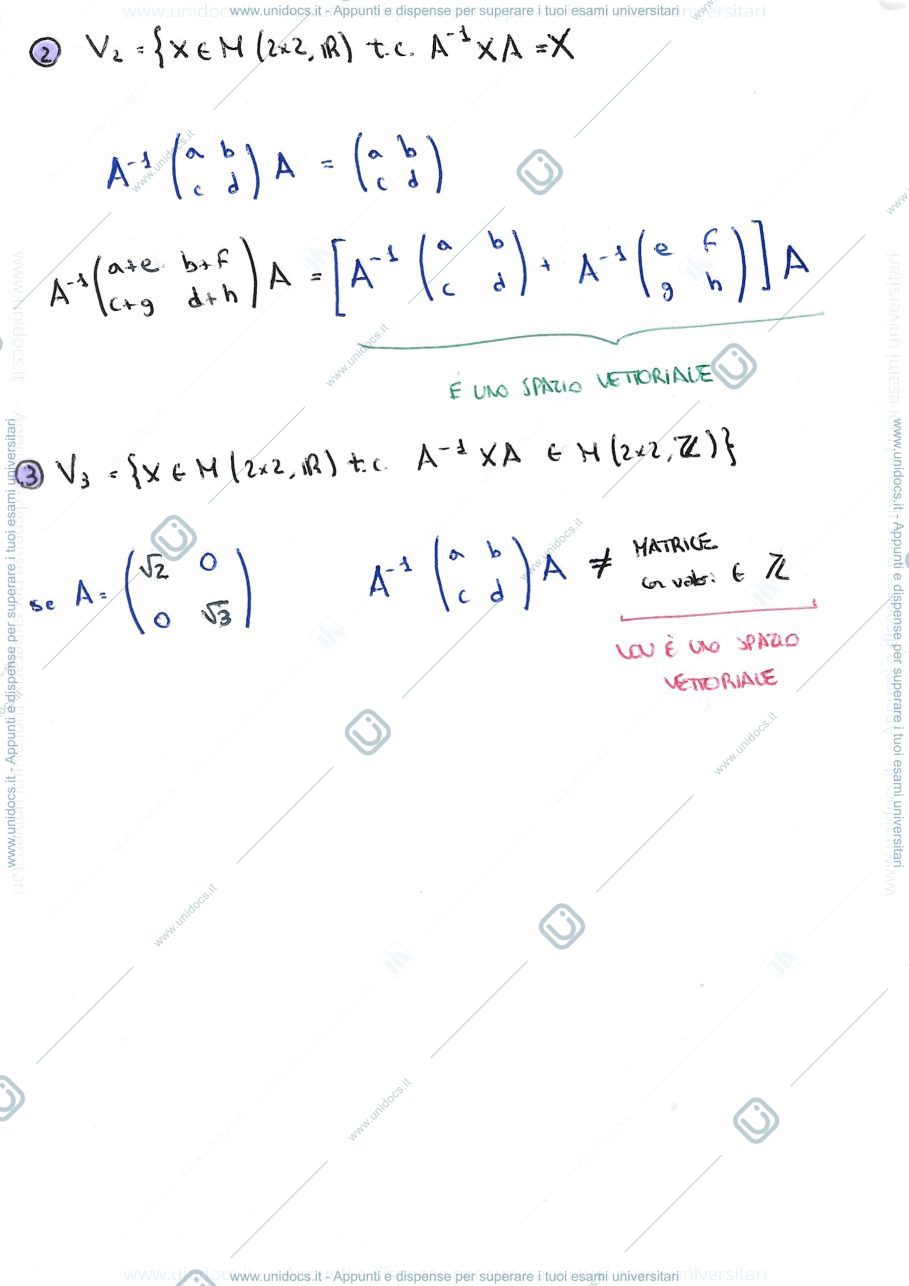 www.unidocs.it - Appunti e dispense per superare i tuoi esami universitari
2 V₂ = {X ∈ M (2×2, ℝ) t.c. A⁻¹XA = X
A⁻¹ (a b; c d) A = (a b; c d)
A⁻¹ (a+e b+f; c+g d+h) A = [A⁻¹ (a b; c d) + A⁻¹ (e f; g h)] A
È UNO SPAZIO VETTORIALE
3 V₃ = {X ∈ M (2×2, ℝ) t.c. A⁻¹XA ∈ M (2×2, ℤ)}
se A = (√2 0; 0 √3) A⁻¹ (a b; c d) A ≠ MATRICE
con valori ∈ ℤ
NON È UNO SPAZIO
VETTORIALE
www.unidocs.it - Appunti e dispense per superare i tuoi esami universitari
www.unidocs.it - Appunti e dispense per superare i tuoi esami universitari
www.unidocs.it - Appunti e dispense per superare i tuoi esami universitari
www.unidocs.it
www.unidocs.it
www.unidocs.it
www.unidocs.it
www.unidocs.it
www.unidocs.it